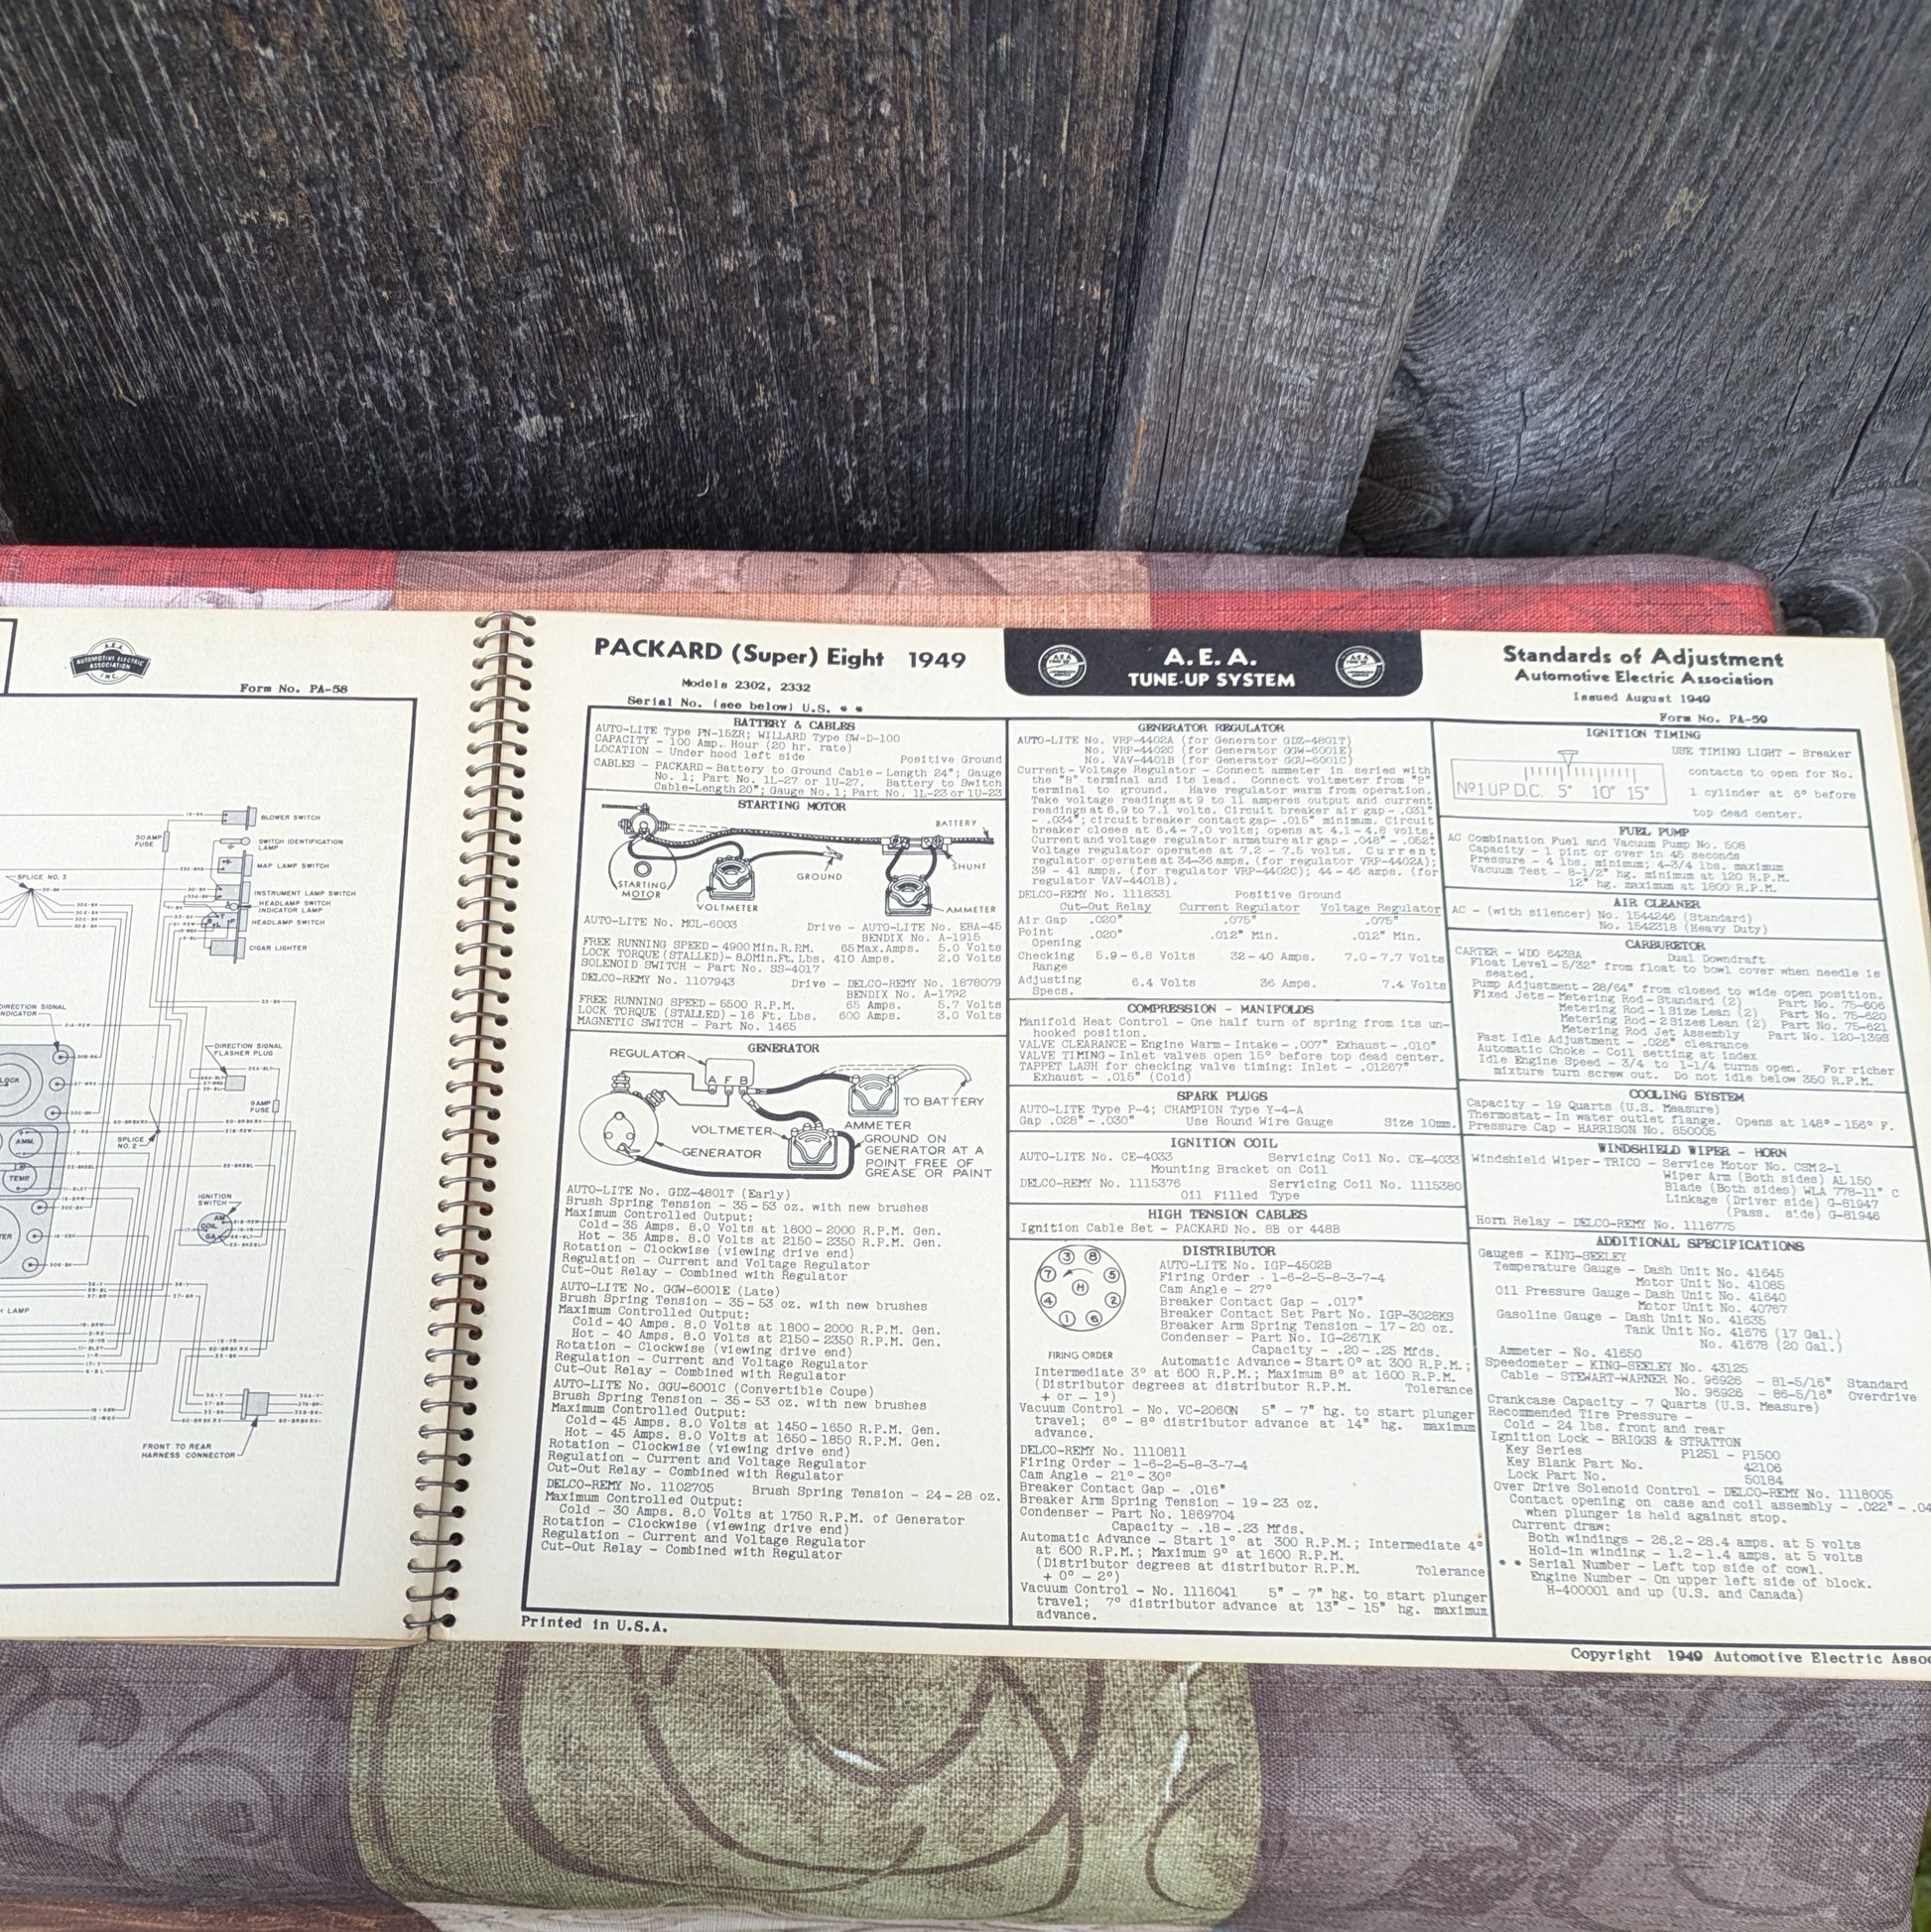 A.E.A.
AUTOMOTIVE ELECTRIC
ASSOCIATION
INC.
Form No. PA-58
BLOWER SWITCH
30 AMP
FUSE
SWITCH IDENTIFICATION
LAMP
MAP LAMP SWITCH
SPLICE NO. 3
INSTRUMENT LAMP SWITCH
HEADLAMP SWITCH
INDICATOR LAMP
HEADLAMP SWITCH
CIGAR LIGHTER
DIRECTION SIGNAL
INDICATOR
DIRECTION SIGNAL
FLASHER PLUG
9 AMP
FUSE
AMM.
SPLICE
NO. 2
TEMP
IGNITION
SWITCH
COIL
LAMP
FRONT TO REAR
HARNESS CONNECTOR
PACKARD (Super) Eight 1949
Models 2302, 2332
Serial No. (see below) U.S. * *
A. E. A.
TUNE-UP SYSTEM
Standards of Adjustment
Automotive Electric Association
Issued August 1949
Form No. PA-59
BATTERY & CABLES
AUTO-LITE Type PN-15ZR; WILLARD Type SW-D-100
CAPACITY - 100 Amp. Hour (20 hr. rate)
LOCATION - Under hood left side Positive Ground
CABLES - PACKARD - Battery to Ground Cable - Length 24"; Gauge
No. 1; Part No. 1L-27 or 1U-27. Battery to Switch
Cable-Length 20"; Gauge No. 1; Part No. 1L-23 or 1U-23
STARTING MOTOR
BATTERY
SHUNT
GROUND
STARTING
MOTOR
VOLTMETER
AMMETER
AUTO-LITE No. MCL-6003 Drive - AUTO-LITE No. EBA-45
BENDIX No. A-1915
FREE RUNNING SPEED - 4900 Min. R.P.M. 65 Max. Amps. 5.0 Volts
LOCK TORQUE (STALLED) - 8.0 Min. Ft. Lbs. 410 Amps. 2.0 Volts
SOLENOID SWITCH - Part No. SS-4017
DELCO-REMY No. 1107943 Drive - DELCO-REMY No. 1878079
BENDIX No. A-1792
FREE RUNNING SPEED - 5500 R.P.M. 65 Amps. 5.7 Volts
LOCK TORQUE (STALLED) - 16 Ft. Lbs. 600 Amps. 3.0 Volts
MAGNETIC SWITCH - Part No. 1465
GENERATOR
REGULATOR
A F B
TO BATTERY
AMMETER
VOLTMETER
GENERATOR
GROUND ON
GENERATOR AT A
POINT FREE OF
GREASE OR PAINT
AUTO-LITE No. GDZ-4801T (Early)
Brush Spring Tension - 35 - 53 oz. with new brushes
Maximum Controlled Output:
Cold - 35 Amps. 8.0 Volts at 1800 - 2000 R.P.M. Gen.
Hot - 35 Amps. 8.0 Volts at 2150 - 2350 R.P.M. Gen.
Rotation - Clockwise (viewing drive end)
Regulation - Current and Voltage Regulator
Cut-Out Relay - Combined with Regulator
AUTO-LITE No. GGW-6001E (Late)
Brush Spring Tension - 35 - 53 oz. with new brushes
Maximum Controlled Output:
Cold - 40 Amps. 8.0 Volts at 1800 - 2000 R.P.M. Gen.
Hot - 40 Amps. 8.0 Volts at 2150 - 2350 R.P.M. Gen.
Rotation - Clockwise (viewing drive end)
Regulation - Current and Voltage Regulator
Cut-Out Relay - Combined with Regulator
AUTO-LITE No. GGU-6001C (Convertible Coupe)
Brush Spring Tension - 35 - 53 oz. with new brushes
Maximum Controlled Output:
Cold - 45 Amps. 8.0 Volts at 1450 - 1650 R.P.M. Gen.
Hot - 45 Amps. 8.0 Volts at 1650 - 1850 R.P.M. Gen.
Rotation - Clockwise (viewing drive end)
Regulation - Current and Voltage Regulator
Cut-Out Relay - Combined with Regulator
DELCO-REMY No. 1102705 Brush Spring Tension - 24 - 28 oz.
Maximum Controlled Output:
Cold - 30 Amps. 8.0 Volts at 1750 R.P.M. of Generator
Rotation - Clockwise (viewing drive end)
Regulation - Current and Voltage Regulator
Cut-Out Relay - Combined with Regulator
Printed in U.S.A.
GENERATOR REGULATOR
AUTO-LITE No. VRP-4402A (for Generator GDZ-4801T)
No. VRP-4402C (for Generator GGW-6001E)
No. VAV-4401B (for Generator GGU-6001C)
Current - Voltage Regulator - Connect ammeter in series with
the "B" terminal and its lead. Connect voltmeter from "B"
terminal to ground. Have regulator warm from operation.
Take voltage readings at 9 to 11 amperes output and current
readings at 6.9 to 7.1 volts. Circuit breaker air gap - .031"
- .034"; circuit breaker contact gap - .015" minimum. Circuit
breaker closes at 6.4 - 7.0 volts; opens at 4.1 - 4.8 volts.
Current and voltage regulator armature air gap - .048" - .052"
Voltage regulator operates at 7.2 - 7.5 volts. Current
regulator operates at 34-36 amps. (for regulator VRP-4402A);
39 - 41 amps. (for regulator VRP-4402C); 44 - 46 amps. (for
regulator VAV-4401B).
DELCO-REMY No. 1118331 Positive Ground
Cut-Out Relay Current Regulator Voltage Regulator
Air Gap .020" .075" .075"
Point
Opening .020" .012" Min. .012" Min.
Checking
Range 5.9 - 6.8 Volts 32 - 40 Amps. 7.0 - 7.7 Volts
Adjusting
Specs. 6.4 Volts 36 Amps. 7.4 Volts
COMPRESSION - MANIFOLDS
Manifold Heat Control - One half turn of spring from its un-
hooked position.
VALVE CLEARANCE - Engine Warm - Intake - .007" Exhaust - .010"
VALVE TIMING - Inlet valves open 15° before top dead center.
TAPPET LASH for checking valve timing: Inlet - .01267"
Exhaust - .015" (Cold)
SPARK PLUGS
AUTO-LITE Type P-4; CHAMPION Type Y-4-A
Gap .028" - .030" Use Round Wire Gauge Size 10mm.
IGNITION COIL
AUTO-LITE No. CE-4033 Servicing Coil No. CE-4033
Mounting Bracket on Coil
DELCO-REMY No. 1115376 Servicing Coil No. 1115380
Oil Filled Type
HIGH TENSION CABLES
Ignition Cable Set - PACKARD No. 8B or 448B
DISTRIBUTOR
3 8 7 5 H 4 2 1 6
FIRING ORDER
AUTO-LITE No. IGP-4502B
Firing Order - 1-6-2-5-8-3-7-4
Cam Angle - 27°
Breaker Contact Gap - .017"
Breaker Contact Set Part No. IGP-3028KS
Breaker Arm Spring Tension - 17 - 20 oz.
Condenser - Part No. IG-2671K
Capacity - .20 - .25 Mfds.
Automatic Advance - Start 0° at 300 R.P.M.;
Intermediate 3° at 600 R.P.M.; Maximum 8° at 1600 R.P.M.
(Distributor degrees at distributor R.P.M. Tolerance
+ or - 1°)
Vacuum Control - No. VC-2060N 5" - 7" hg. to start plunger
travel; 6° - 8° distributor advance at 14" hg. maximum
advance.
DELCO-REMY No. 1110811
Firing Order - 1-6-2-5-8-3-7-4
Cam Angle - 21° - 30°
Breaker Contact Gap - .016"
Breaker Arm Spring Tension - 19 - 23 oz.
Condenser - Part No. 1869704
Capacity - .18 - .23 Mfds.
Automatic Advance - Start 1° at 300 R.P.M.; Intermediate 4°
at 600 R.P.M.; Maximum 9° at 1600 R.P.M.
(Distributor degrees at distributor R.P.M. Tolerance
+ 0° - 2°)
Vacuum Control - No. 1116041 5" - 7" hg. to start plunger
travel; 7° distributor advance at 13" - 15" hg. maximum
advance.
IGNITION TIMING
Nº1 UP D.C. 5° 10° 15°
USE TIMING LIGHT - Breaker
contacts to open for No.
1 cylinder at 6° before
top dead center.
FUEL PUMP
AC Combination Fuel and Vacuum Pump No. 508
Capacity - 1 pint or over in 45 seconds
Pressure - 4 lbs. minimum; 4-3/4 lbs. maximum
Vacuum Test - 8-1/2" hg. minimum at 120 R.P.M.
12" hg. maximum at 1800 R.P.M.
AIR CLEANER
AC - (with silencer) No. 1544246 (Standard)
No. 1542318 (Heavy Duty)
CARBURETOR
CARTER - WDO 643SA Dual Downdraft
Float Level - 5/32" from float to bowl cover when needle is
seated.
Pump Adjustment - 28/64" from closed to wide open position.
Fixed Jets - Metering Rod - Standard (2) Part No. 75-606
Metering Rod - 1 Size Lean (2) Part No. 75-620
Metering Rod - 2 Sizes Lean (2) Part No. 75-621
Metering Rod Jet Assembly Part No. 120-139S
Fast Idle Adjustment - .026" clearance
Automatic Choke - Coil setting at index
Idle Engine Speed - 3/4 to 1-1/4 turns open. For richer
mixture turn screw out. Do not idle below 350 R.P.M.
COOLING SYSTEM
Capacity - 19 Quarts (U.S. Measure)
Thermostat - In water outlet flange. Opens at 148° - 156° F.
Pressure Cap - HARRISON No. 850005
WINDSHIELD WIPER - HORN
Windshield Wiper - TRICO - Service Motor No. CSM 2-1
Wiper Arm (Both sides) AL 150
Blade (Both sides) WLA 778-11" C
Linkage (Driver side) G-81947
(Pass. side) G-81946
Horn Relay - DELCO-REMY No. 1116775
ADDITIONAL SPECIFICATIONS
Gauges - KING-SEELEY
Temperature Gauge - Dash Unit No. 41645
Motor Unit No. 41085
Oil Pressure Gauge - Dash Unit No. 41640
Motor Unit No. 40767
Gasoline Gauge - Dash Unit No. 41635
Tank Unit No. 41676 (17 Gal.)
No. 41678 (20 Gal.)
Ammeter - No. 41650
Speedometer - KING-SEELEY No. 43125
Cable - STEWART-WARNER No. 96926 - 81-5/16" Standard
No. 96926 - 86-5/16" Overdrive
Crankcase Capacity - 7 Quarts (U.S. Measure)
Recommended Tire Pressure -
Cold - 24 lbs. front and rear
Ignition Lock - BRIGGS & STRATTON
Key Series P1251 - P1500
Key Blank Part No. 42106
Lock Part No. 50184
Over Drive Solenoid Control - DELCO-REMY No. 1118005
Contact opening on case and coil assembly - .022" - .04
when plunger is held against stop.
Current draw:
Both windings - 26.2 - 28.4 amps. at 5 volts
Hold-in winding - 1.2 - 1.4 amps. at 5 volts
* * Serial Number - Left top side of cowl.
Engine Number - On upper left side of block.
H-400001 and up (U.S. and Canada)
Copyright 1949 Automotive Electric Asso